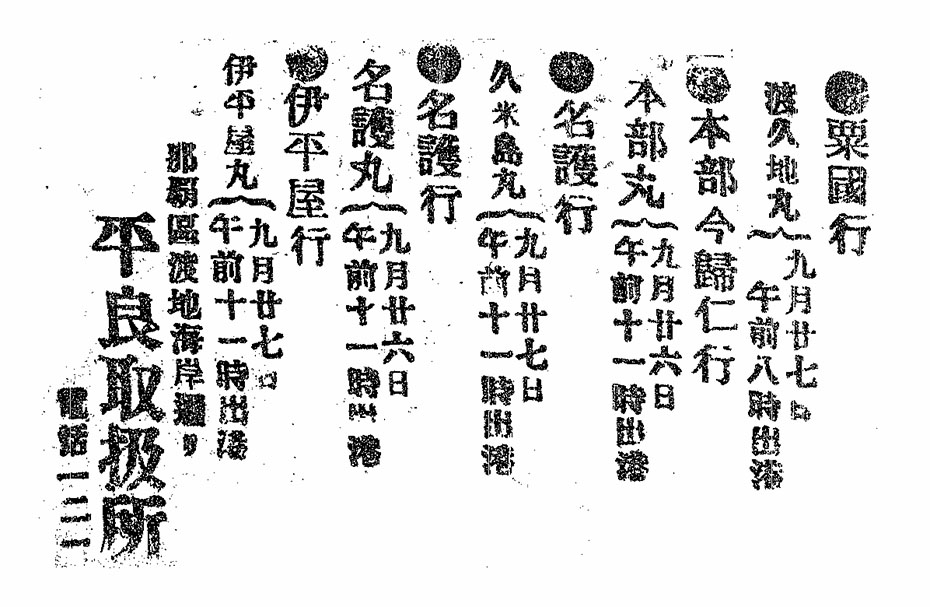 ●粟國行
渡久地丸
九月廿七日
午前八時出港
●本部今歸仁行
本部丸
九月廿六日
午前十一時出港
●名護行
久米島丸
九月廿七日
午前十一時出港
●名護行
名護丸
九月廿六日
午前十一時出港
●伊平屋行
伊平屋丸
九月廿七日
午前十一時出港
那覇區渡地海岸通り
平良取扱所
電話一二一